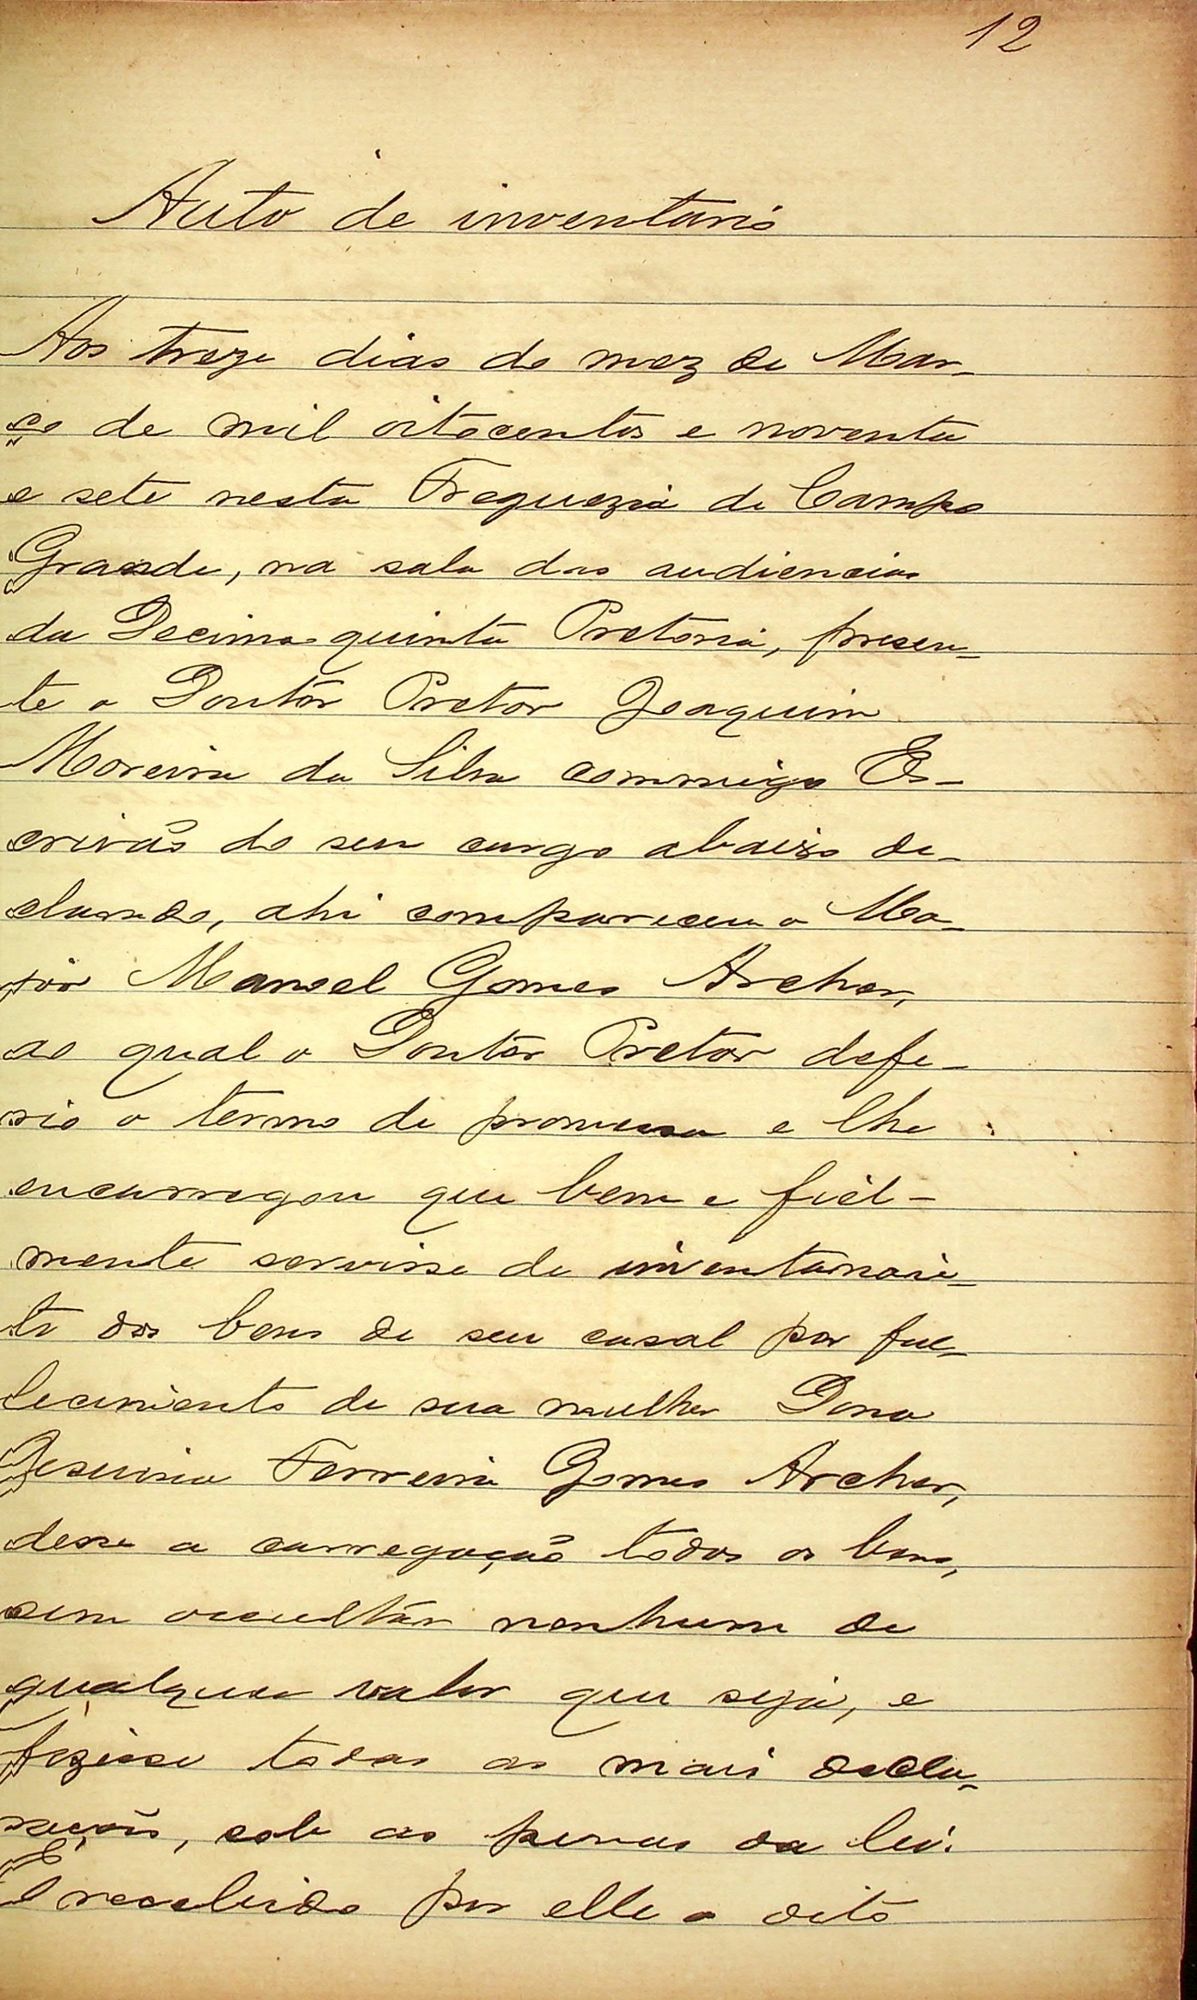 12
Auto de inventario
Aos treze dias do mez de Mar-
ço de mil oitocentos e noventa
e sete nesta Freguezia de Campo
Grande, na sala das audiencias
da Decima quinta Pretoria, presen-
te o Doutôr Pretor Joaquim
Moreira da Silva commigo Es-
crivão do seu cargo abaixo de-
clarado, ahi compareceu o Ma-
jor Manoel Gomes Archer,
ao qual o Doutôr Pretor defe-
rio o termo de promessa e lhe
encarregou que bem e fiel-
mente servisse de inventarian-
te dos bens de seu casal por fal-
lecimento de sua mulher Dona
Jesuina Ferreira Gomes Archer,
desse a carregação todos os bens,
sem occultar nenhum de
qualquer valor que seja, e
fizesse todas as mais decla-
rações, sob as penas da lei.
E recebido por elle o dito